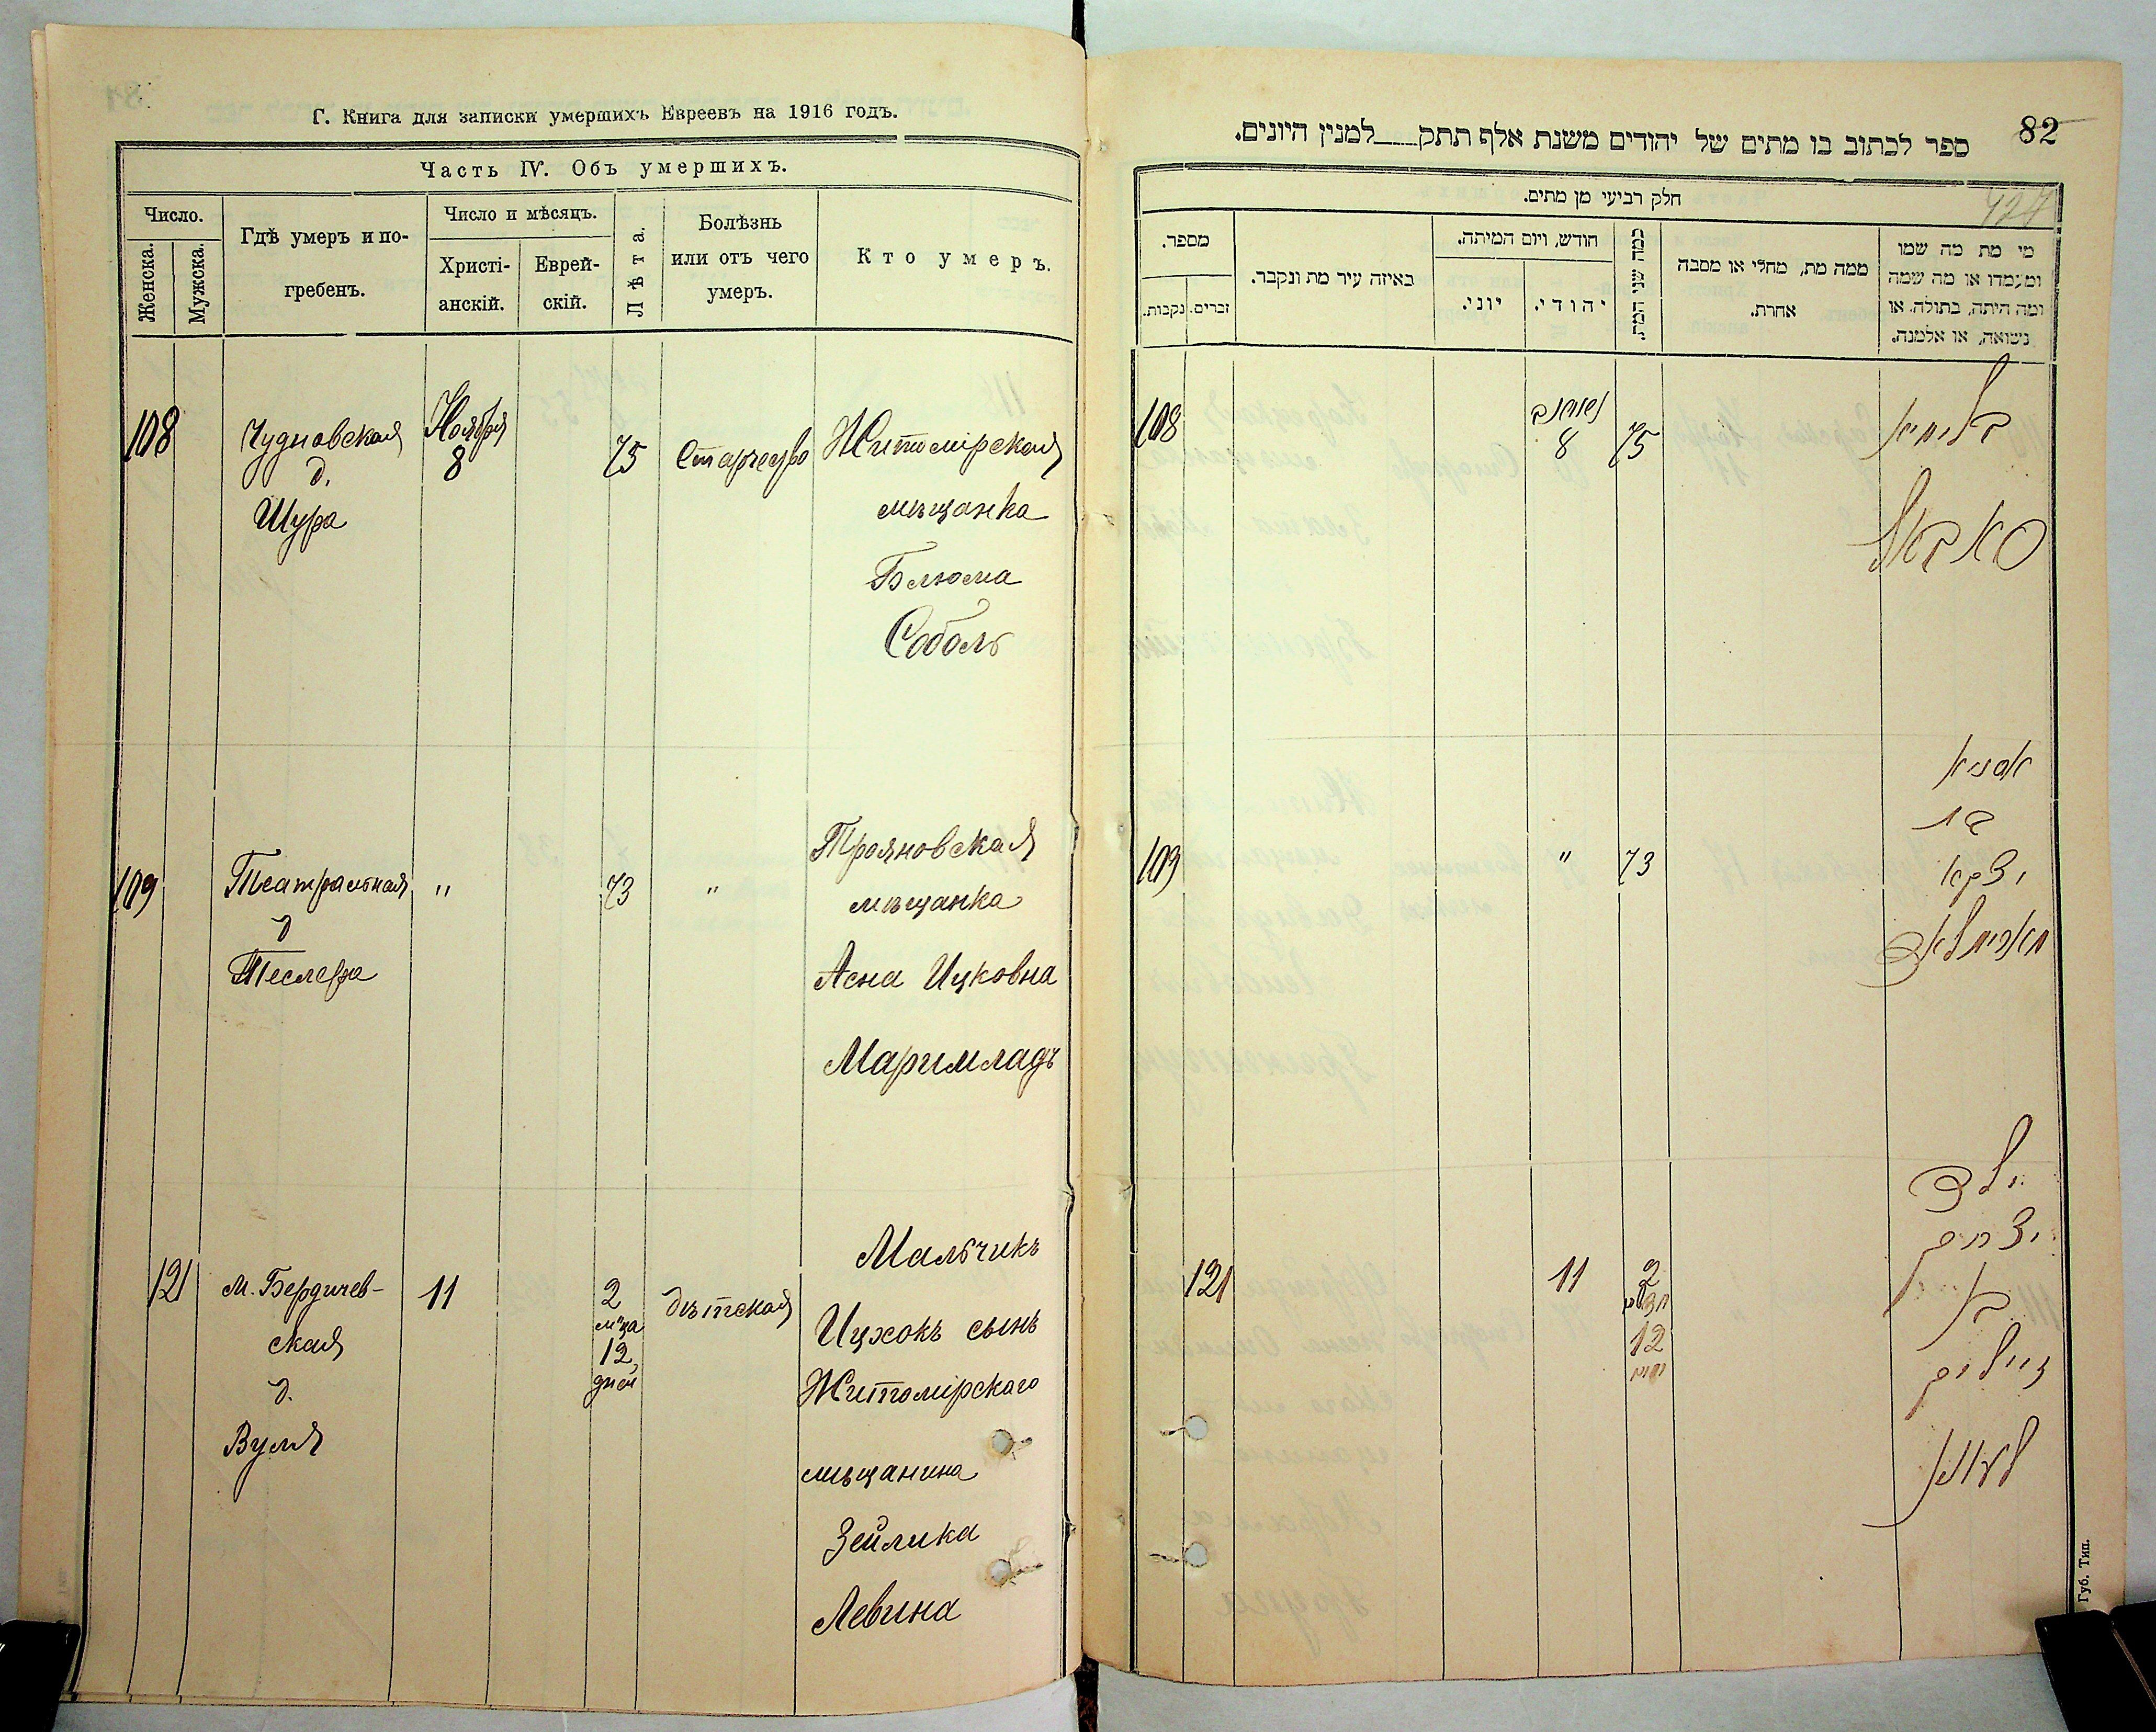 Г. Книга для записки умершихъ Евреевъ на 1916 годъ.
Часть IV. Объ умершихъ.
Число.
Женска.
Мужска.
Гдѣ умеръ и по-
гребенъ.
Число и мѣсяцъ.
Христі-
анскій.
Еврей-
скій.
Лѣта.
Болѣзнь
или отъ чего
умеръ.
Кто умеръ.
108
Чудновская
д.
Шура
Ноября
8
75
Старчество
Житомірская
мѣщанка
Блюма
Соболь
109
Театральная
д
Теслера
"
73
"
Трояновская
мѣщанка
Асна Ицковна
Маримладъ
121
М. Бердичев-
ская
д.
Вуля
11
2
м-ца
12
дней
дѣтская
Мальчикъ
Ицхокъ сынъ
Житомірскаго
мѣщанина
Зейлика
Левина
82
ספר לכתוב בו מתים של יהודים משנת אלף תתק למנין היונים.
חלק רביעי מן מתים.
מספר.
נקבות.
זכרים.
באיזה עיר מת ונקבר.
חודש, ויום המיתה.
יוני.
יהודי.
כמה שני המת.
ממה מת, מחלי או מסבה
אחרת.
מי מת מה שמו
ומעמדו או מה שמה
ומה היתה, בתולה, או
נשואה, או אלמנה.
108
8
75
בלומא
סאבאל
109
"
73
אסנא
בת
יצקא
121
11
2
12
ילד
יצחק
בן
זייליק
לעווין
Губ. Тип.